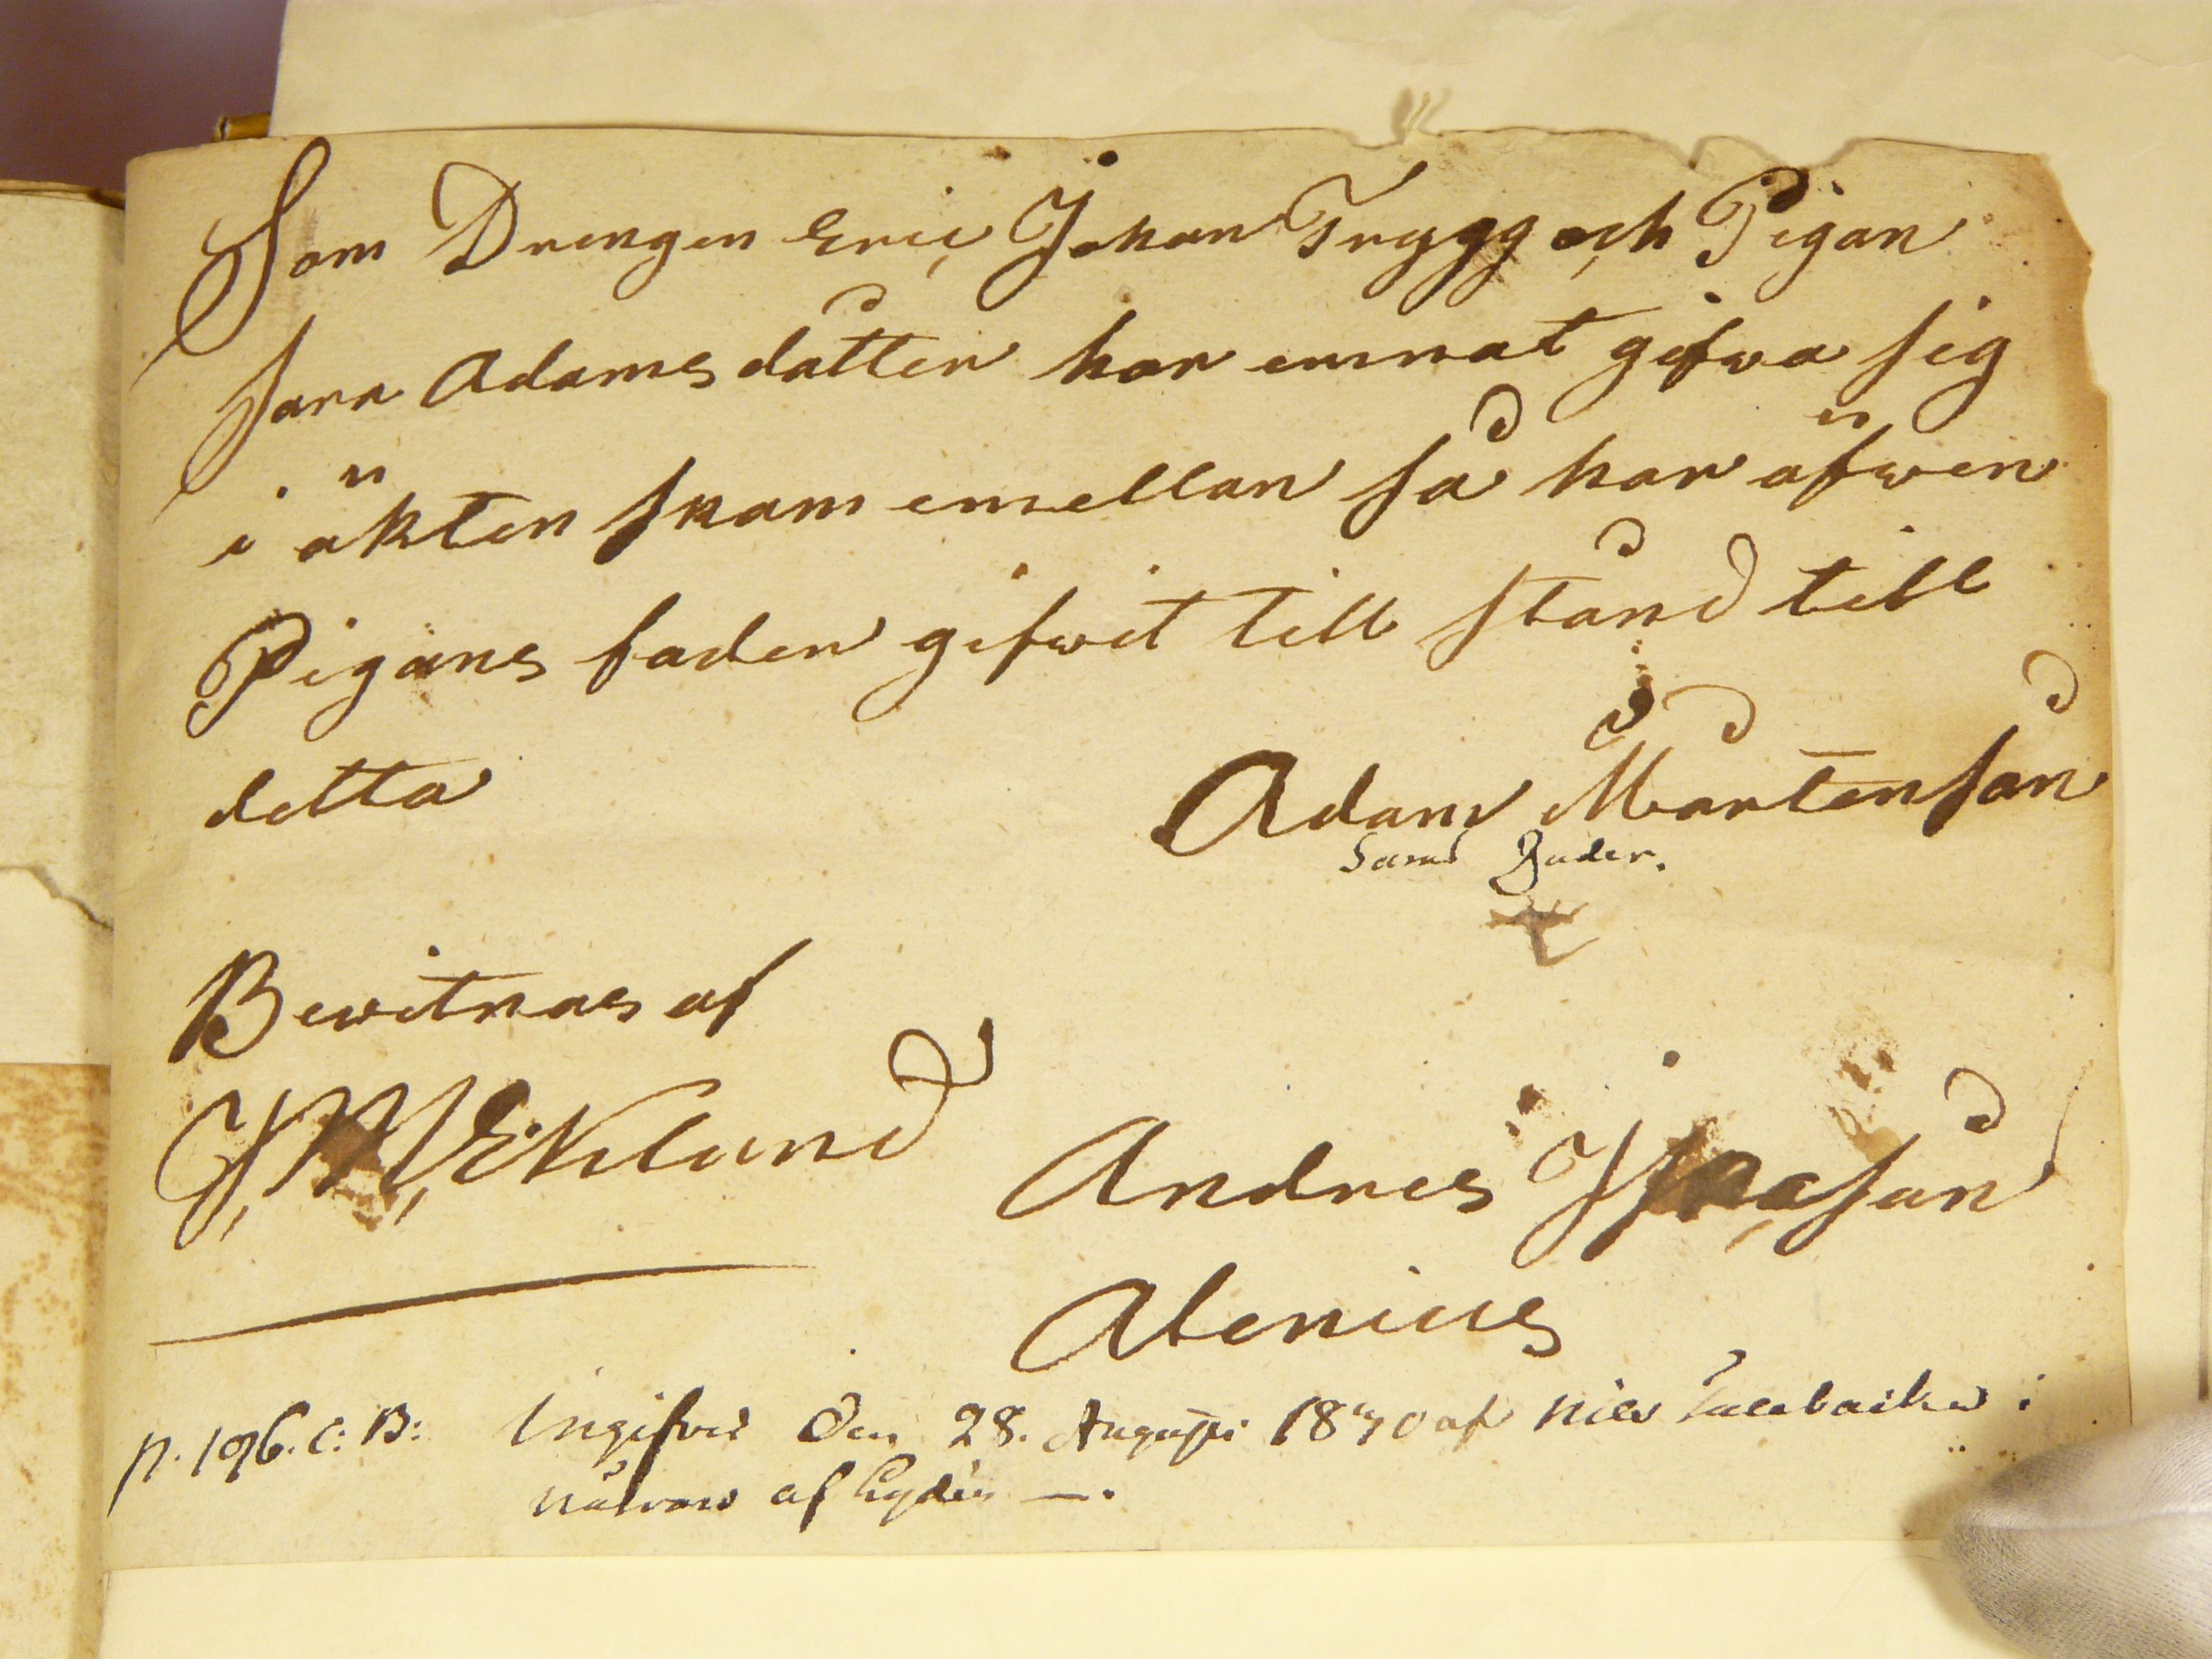 Som Drengen Eric Johan Trygg och Pigan
Sara Adams dåtter har emnat gifva sig
i äkten skam emellan så har äfwen
Pigans fader gifwit till stånd till
detta
Adam Mårtensån
Sams Fader.
Bewitnas af
G, M, Eklund
Andres Isracsån
Alenius
p. 196. C: B: Ingifvet den 28. Augusti 1840 af Nils
närvaro af